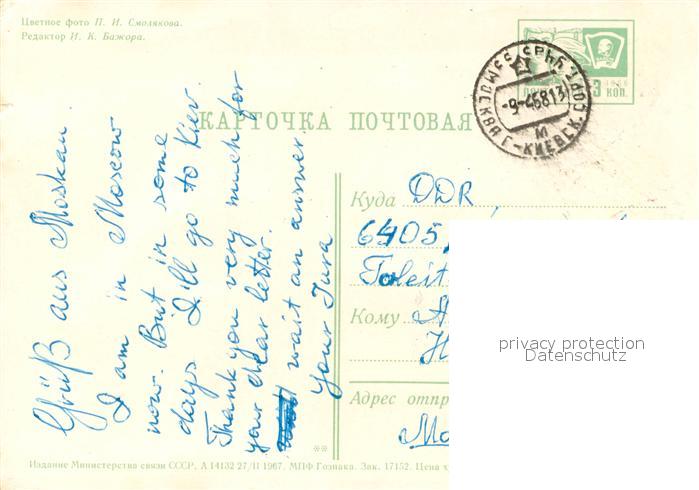 Цветное фото П. И. Смолякова.
Редактор И. К. Бажора.
3 КОП.
МОСКВА Г-КИЕВСК.
-9-46813
М
КАРТОЧКА ПОЧТОВАЯ
Grüß aus Moskau
I am in Moscow
now. But in some
days I'll go to Kiev
Thank you very much for
your dear letter.
wait an answer
your Jura
Куда DDR
6405,
Кому
Адрес отпр
privacy protection
Datenschutz
**
Издание Министерства связи СССР. А 14132 27/II 1967. МПФ Гознака. Зак. 17152. Цена